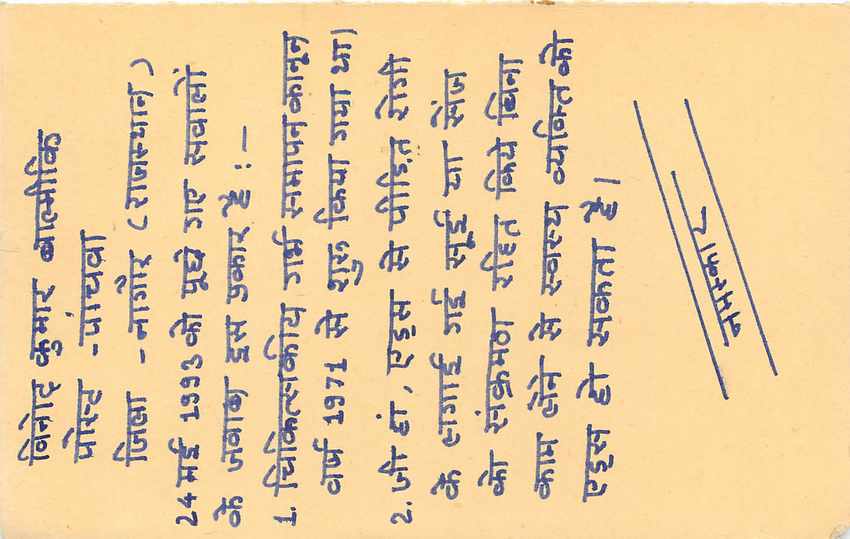 विनोद कुमार बाल्मीकि
पोस्ट - पांचवा
जिला - नागौर (राजस्थान)
24 मई 1993 को पूछे गए सवालों
के जवाब इस प्रकार हैं :-
1. चिकित्सकीय गर्भ समापन कानून
वर्ष 1971 से शुरु किया गया था।
2. जी हां, एड्स से पीड़ित रोगी
के लगाई गई सूई या सेंज
को संक्रमण रहित किये बिना
काम लेने से स्वस्थ व्यक्ति को
एड्स हो सकता है।